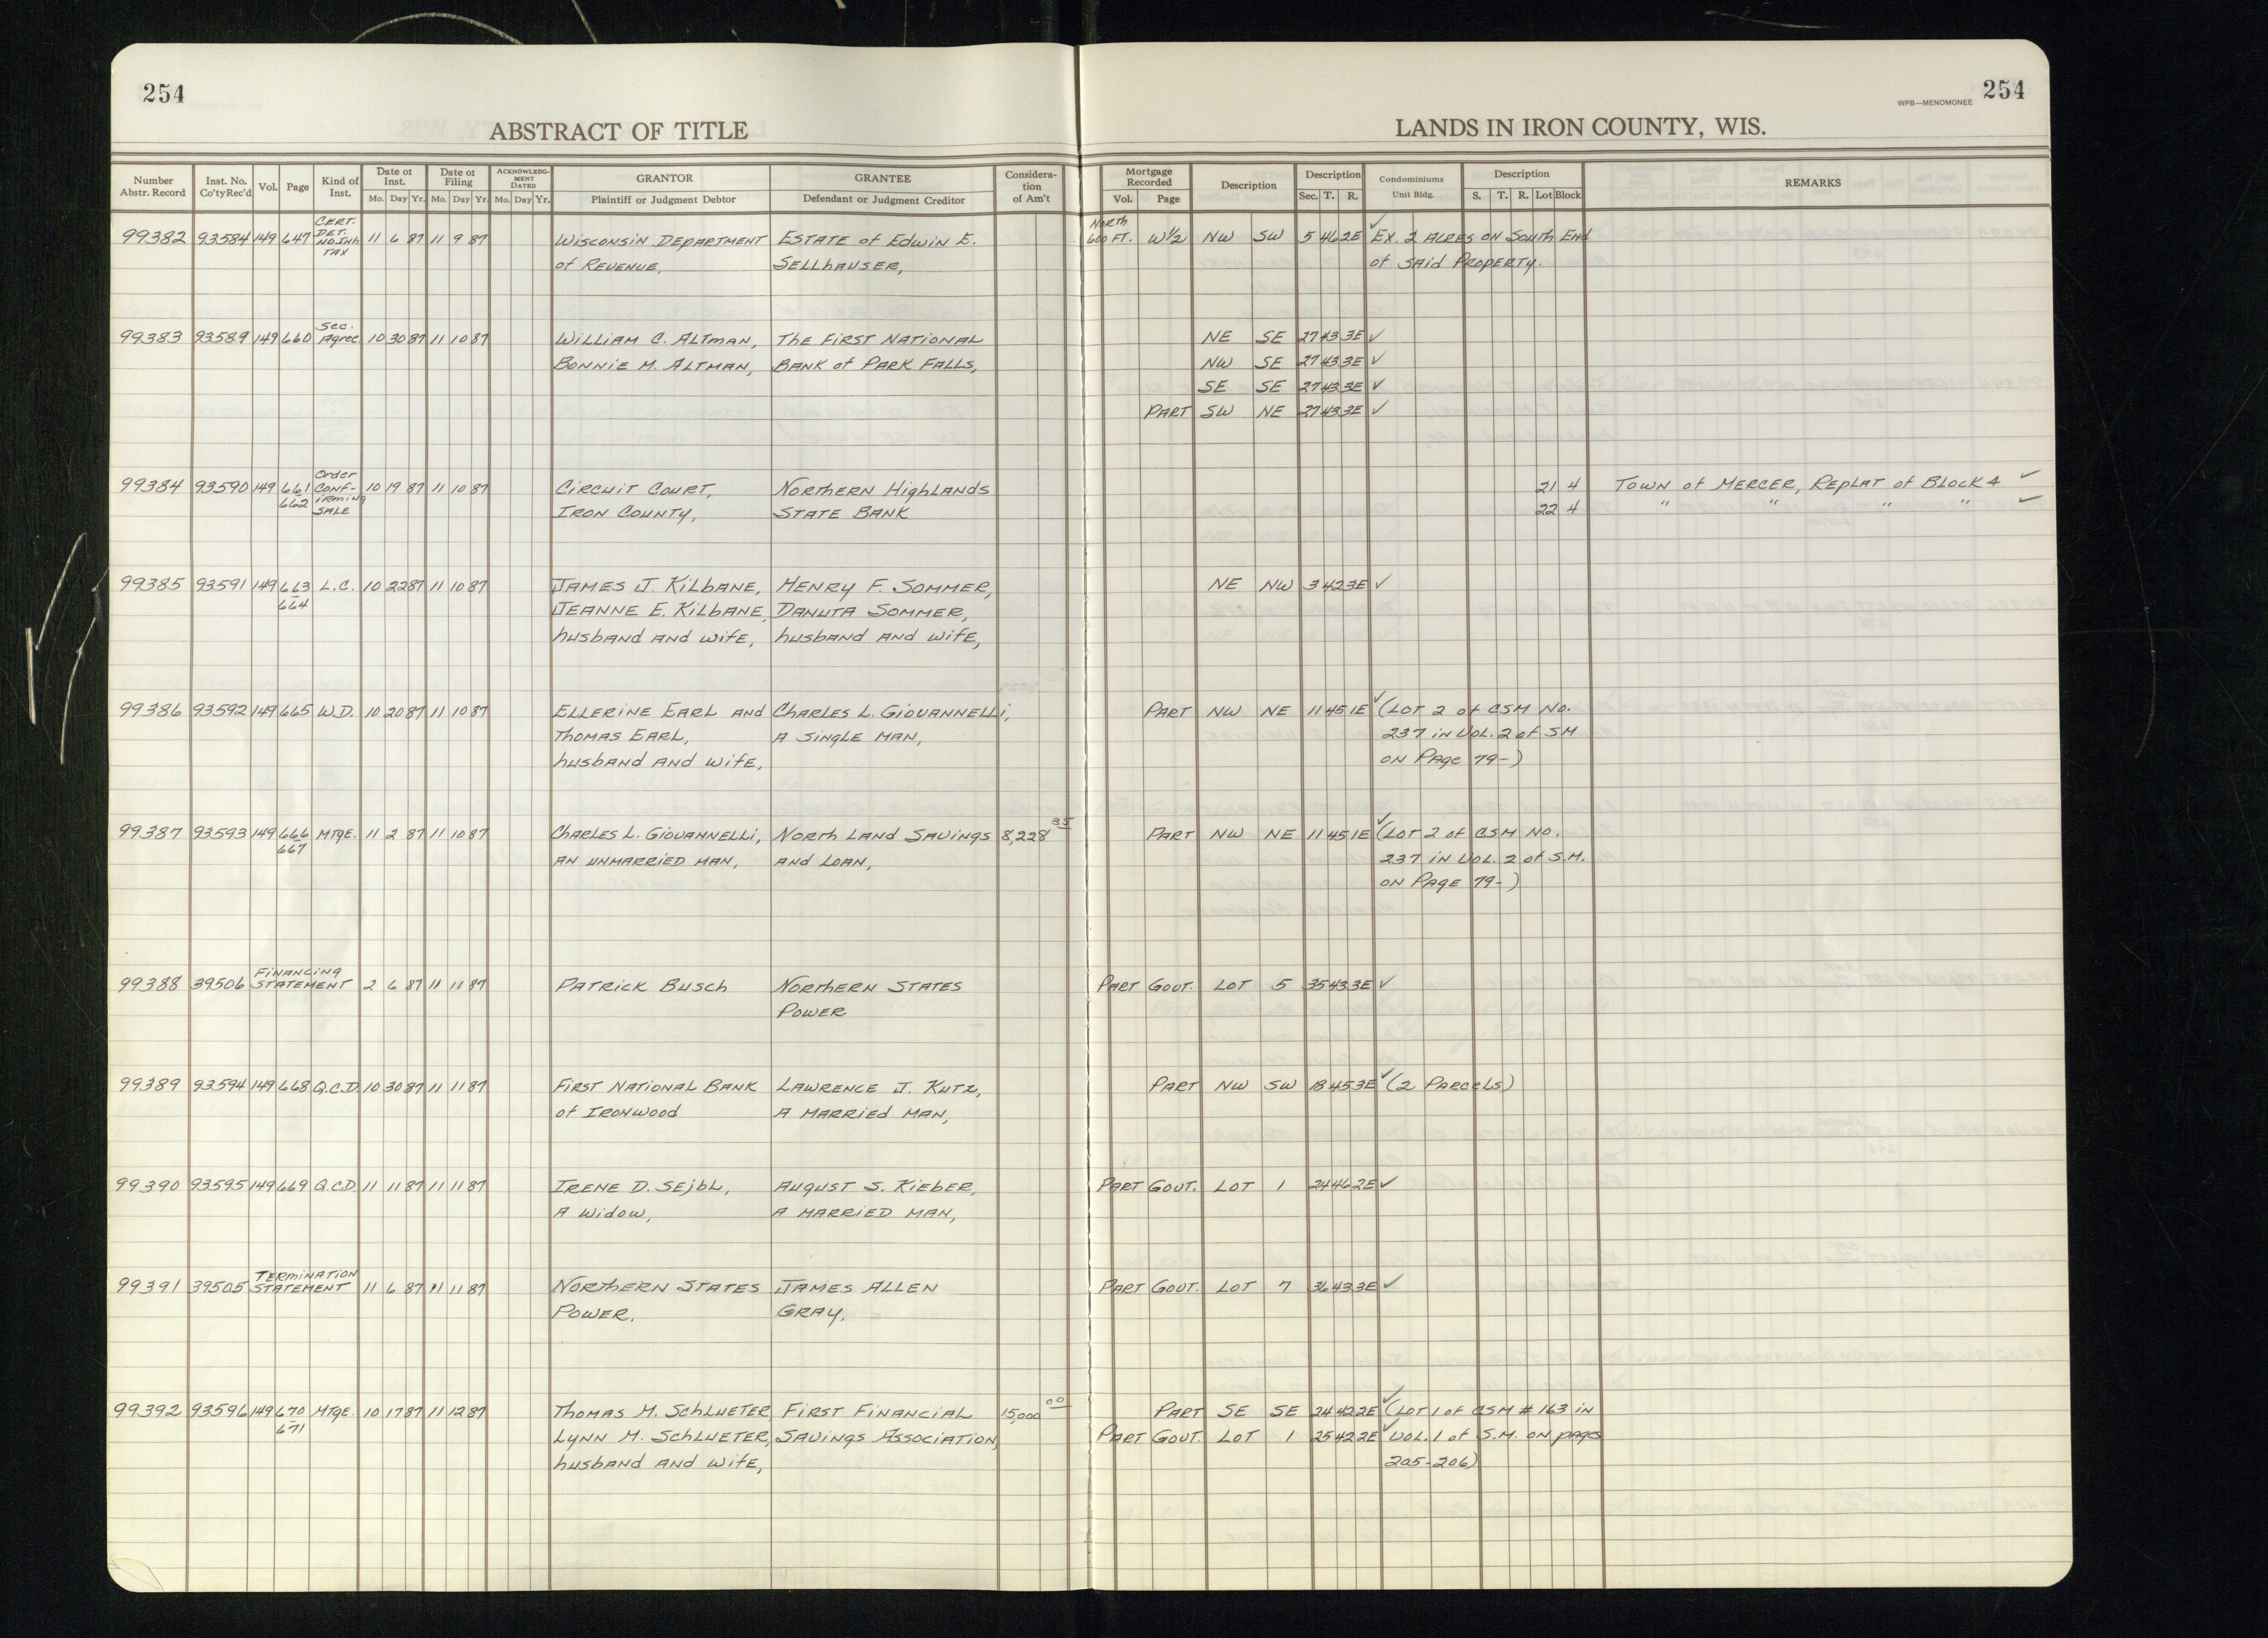 254
254
WPB—MENOMONEE
ABSTRACT OF TITLE
LANDS IN IRON COUNTY, WIS.
Number Abstr. Record | Inst. No. Co'ty Rec'd | Vol. | Page | Kind of Inst. | Date of Inst. Mo. Day Yr. | Date of Filing Mo. Day Yr. | ACKNOWLEDGMENT DATED Mo. Day Yr. | GRANTOR Plaintiff or Judgment Debtor | GRANTEE Defendant or Judgment Creditor | Consideration of Am't | Mortgage Recorded Vol. Page | Description | Description Sec. T. R. | Condominiums Unit Bldg. | Description S. T. R. Lot Block | REMARKS
99382 93584 149 647 CERT. DET. NO INH TAX 11 6 87 11 9 87 Wisconsin Department Estate of Edwin E. North 600 FT. W½ NW SW 5 46 2E ✓ Ex. 2 Acres on South End
of Revenue, Sellhauser, of Said Property.
99383 93589 149 660 Sec. Agree. 10 30 87 11 10 87 William C. Altman, The First National NE SE 27 43 3E ✓
Bonnie M. Altman, Bank of Park Falls, NW SE 27 43 3E ✓
SE SE 27 43 3E ✓
Part SW NE 27 43 3E ✓
99384 93590 149 661-662 Order Conf-irming Sale 10 19 87 11 10 87 Circuit Court, Northern Highlands 21 4 Town of Mercer, Replat of Block 4 ✓
Iron County, State Bank 22 4 " " " " ✓
99385 93591 149 663-664 L.C. 10 22 87 11 10 87 James J. Kilbane, Henry F. Sommer, NE NW 3 42 3E ✓
Jeanne E. Kilbane, Danuta Sommer,
husband and wife, husband and wife,
99386 93592 149 665 W.D. 10 20 87 11 10 87 Ellerine Earl and Charles L. Giovannelli, Part NW NE 11 45 1E ✓ (Lot 2 of CSM No.
Thomas Earl, a single man, 237 in Vol. 2 of SM
husband and wife, on Page 79-)
99387 93593 149 666-667 Mtge. 11 2 87 11 10 87 Charles L. Giovannelli, North Land Savings 8,228 35 Part NW NE 11 45 1E ✓ (Lot 2 of CSM No.
an unmarried man, and Loan, 237 in Vol. 2 of S.M.
on Page 79-)
99388 39506 Financing Statement 2 6 87 11 11 87 Patrick Busch Northern States Part Gout. Lot 5 35 43 3E ✓
Power
99389 93594 149 668 Q.C.D. 10 30 87 11 11 87 First National Bank Lawrence J. Kutz, Part NW SW 18 45 3E ✓ (2 Parcels)
of Ironwood a married man,
99390 93595 149 669 Q.C.D. 11 11 87 11 11 87 Irene D. Sejbl, August S. Kieber, Part Gout. Lot 1 24 46 2E ✓
a widow, a married man,
99391 39505 Termination Statement 11 6 87 11 11 87 Northern States James Allen Part Gout. Lot 7 36 43 3E ✓
Power. Gray,
99392 93596 149 670-671 Mtge. 10 17 87 11 12 87 Thomas M. Schlueter First Financial 15,000 00 Part SE SE 24 42 2E ✓ (Lot 1 of CSM # 163 in
Lynn M. Schlueter, Savings Association, Part Gout. Lot 1 25 42 2E ✓ Vol. 1 of S.M. on pages
husband and wife, 205-206)